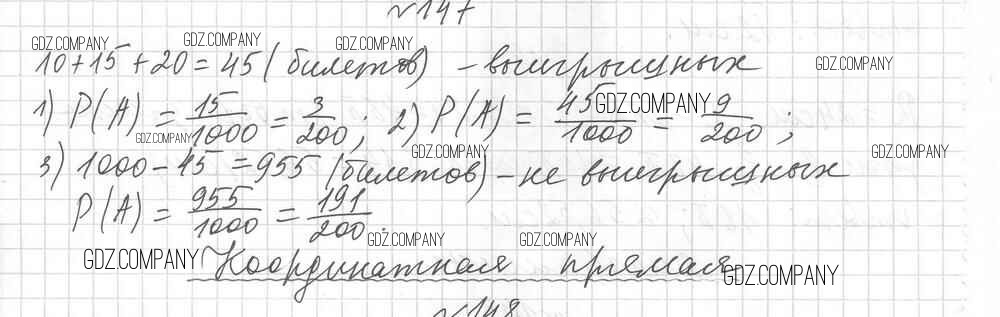 №147
GDZ.COMPANY GDZ.COMPANY GDZ.COMPANY
10+15+20=45(билетов) – выигрышных GDZ.COMPANY
1) P(A) = 15/1000 = 3/200; 2) P(A) = 45/1000 = 9/200; GDZ.COMPANY
GDZ.COMPANY GDZ.COMPANY GDZ.COMPANY
3) 1000 – 45 = 955 (билетов) – не выигрышных
P(A) = 955/1000 = 191/200.
GDZ.COMPANY GDZ.COMPANY
GDZ.COMPANY Координатная прямая GDZ.COMPANY
№148